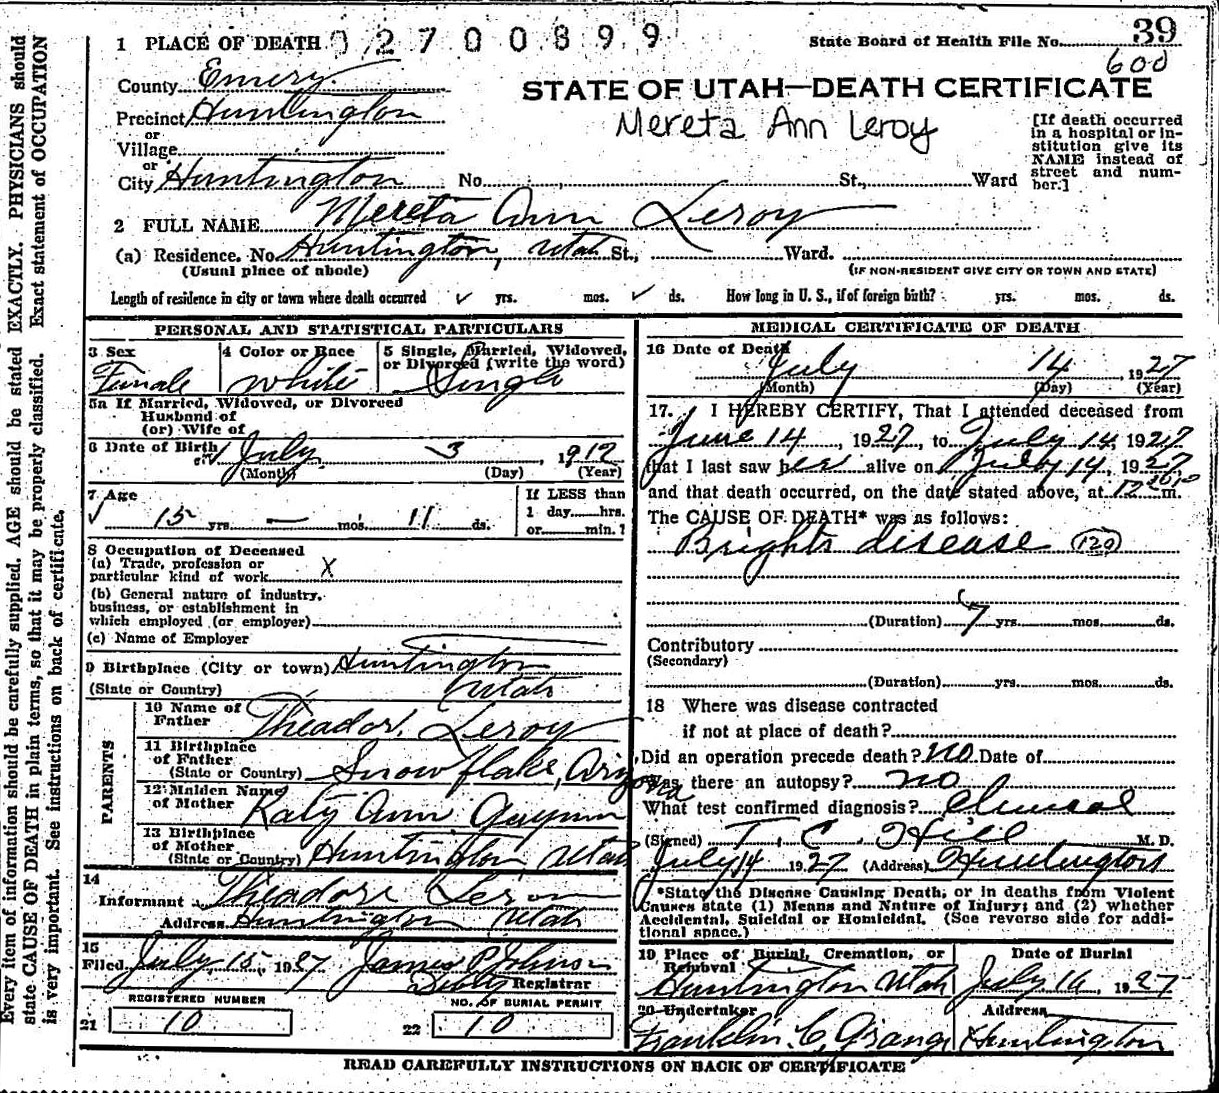 Every item of information should be carefully supplied. AGE should be stated EXACTLY. PHYSICIANS should
state CAUSE OF DEATH in plain terms, so that it may be properly classified. Exact statement of OCCUPATION
is very important. See instructions on back of certificate.
1 PLACE OF DEATH 2700899
State Board of Health File No. 39
600
County Emery
STATE OF UTAH—DEATH CERTIFICATE
Precinct Huntington
Mereta Ann Leroy
or
Village
or
City Huntington No. St., Ward
[If death occurred
in a hospital or in-
stitution give its
NAME instead of
street and num-
ber.]
2 FULL NAME Mereta Ann Leroy
(a) Residence. No. Huntington, Utah St., Ward.
(Usual place of abode) (IF NON-RESIDENT GIVE CITY OR TOWN AND STATE)
Length of residence in city or town where death occurred ✓ yrs. mos. ✓ ds. How long in U. S., if of foreign birth? yrs. mos. ds.
PERSONAL AND STATISTICAL PARTICULARS
3 Sex 4 Color or Race 5 Single, Married, Widowed,
or Divorced (write the word)
Female White Single
5a If Married, Widowed, or Divorced
Husband of
(or) Wife of
6 Date of Birth July 3, 1912
(Month) (Day) (Year)
7 Age If LESS than
✓ 15 yrs — mos. 11 ds. 1 day hrs.
or min.?
8 Occupation of Deceased
(a) Trade, profession or
particular kind of work X
(b) General nature of industry,
business, or establishment in
which employed (or employer)
(c) Name of Employer
9 Birthplace (City or town) Huntington
(State or Country) Utah
PARENTS
10 Name of
Father Theador Leroy
11 Birthplace
of Father
(State or Country) Snowflake, Arizona
12 Maiden Name
of Mother Katy Ann
13 Birthplace
of Mother
(State or Country) Huntington Utah
14
Informant Theadore Leroy
Address Huntington Utah
15
Filed July 15, 1927 James P Johnson
Registrar
REGISTERED NUMBER NO. OF BURIAL PERMIT
21 10 22 10
MEDICAL CERTIFICATE OF DEATH
16 Date of Death
July 14, 1927
(Month) (Day) (Year)
17. I HEREBY CERTIFY, That I attended deceased from
June 14, 1927, to July 14, 1927
that I last saw her alive on July 14, 1927
and that death occurred, on the date stated above, at 12 m.
The CAUSE OF DEATH* was as follows:
Brights disease (129)
(Duration) 7 yrs. mos. ds.
Contributory
(Secondary)
(Duration) yrs. mos. ds.
18 Where was disease contracted
if not at place of death?
Did an operation precede death? no Date of
Was there an autopsy? no
What test confirmed diagnosis? Clinical
(Signed) T. C. Hill M. D.
July 14 1927 (Address) Huntington
*State the Disease Causing Death, or in deaths from Violent
Causes state (1) Means and Nature of Injury; and (2) whether
Accidental, Suicidal or Homicidal. (See reverse side for addi-
tional space.)
19 Place of Burial, Cremation, or
Removal Date of Burial
Huntington Utah July 16, 1927
20 Undertaker Address
Franklin C. Grange Huntington
READ CAREFULLY INSTRUCTIONS ON BACK OF CERTIFICATE